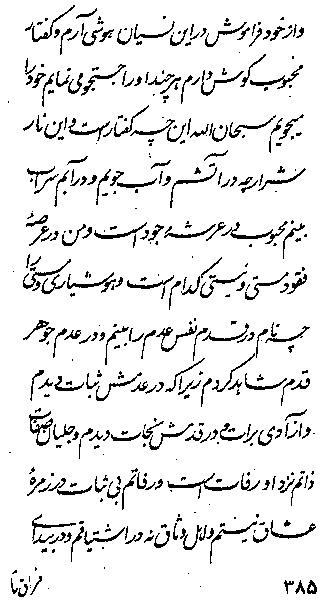 و از خود فراموش در این نسیان هوشی آرم و گفتار
محبوب گوش دارم هر چند او را جستجو می نمایم خود را
میجویم سبحان الله این چه گفتار است و این نار
شرار چه در آتشم و آب جویم و در آبم سراب
بینم محبوب در عرشهٔ وجود است و من در عرصهٔ
فقود مستی و نیستی کدام است و هوشیاری و مستی را
چه نام در قدم نفس عدم را بینم و در عدم جوهر
قدم مشاهد کردم زیرا که در عدمش ثبات دیدم
و از آدی برات و در قدمش نجات دیدم و جلیل صفات
ذاتم نزد او رفات است و رفاتم بی ثبات در زمرهٔ
عشاق نیستم و لایق وثاق نه در اشتیاقم و در بیدای
فراق تا
۳۸۵